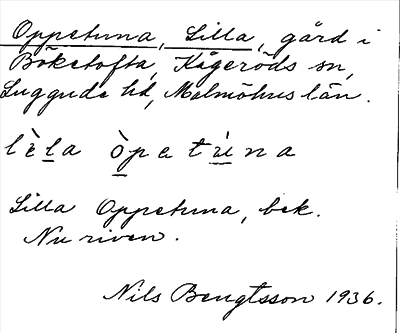 Oppetuna, Lilla, gård i
Böketofta, Kågeröds sn,
Luggude hd, Malmöhus län.
lèla òpetùna
Lilla Oppetuna, bek.
Nu riven.
Nils Bengtsson 1936.